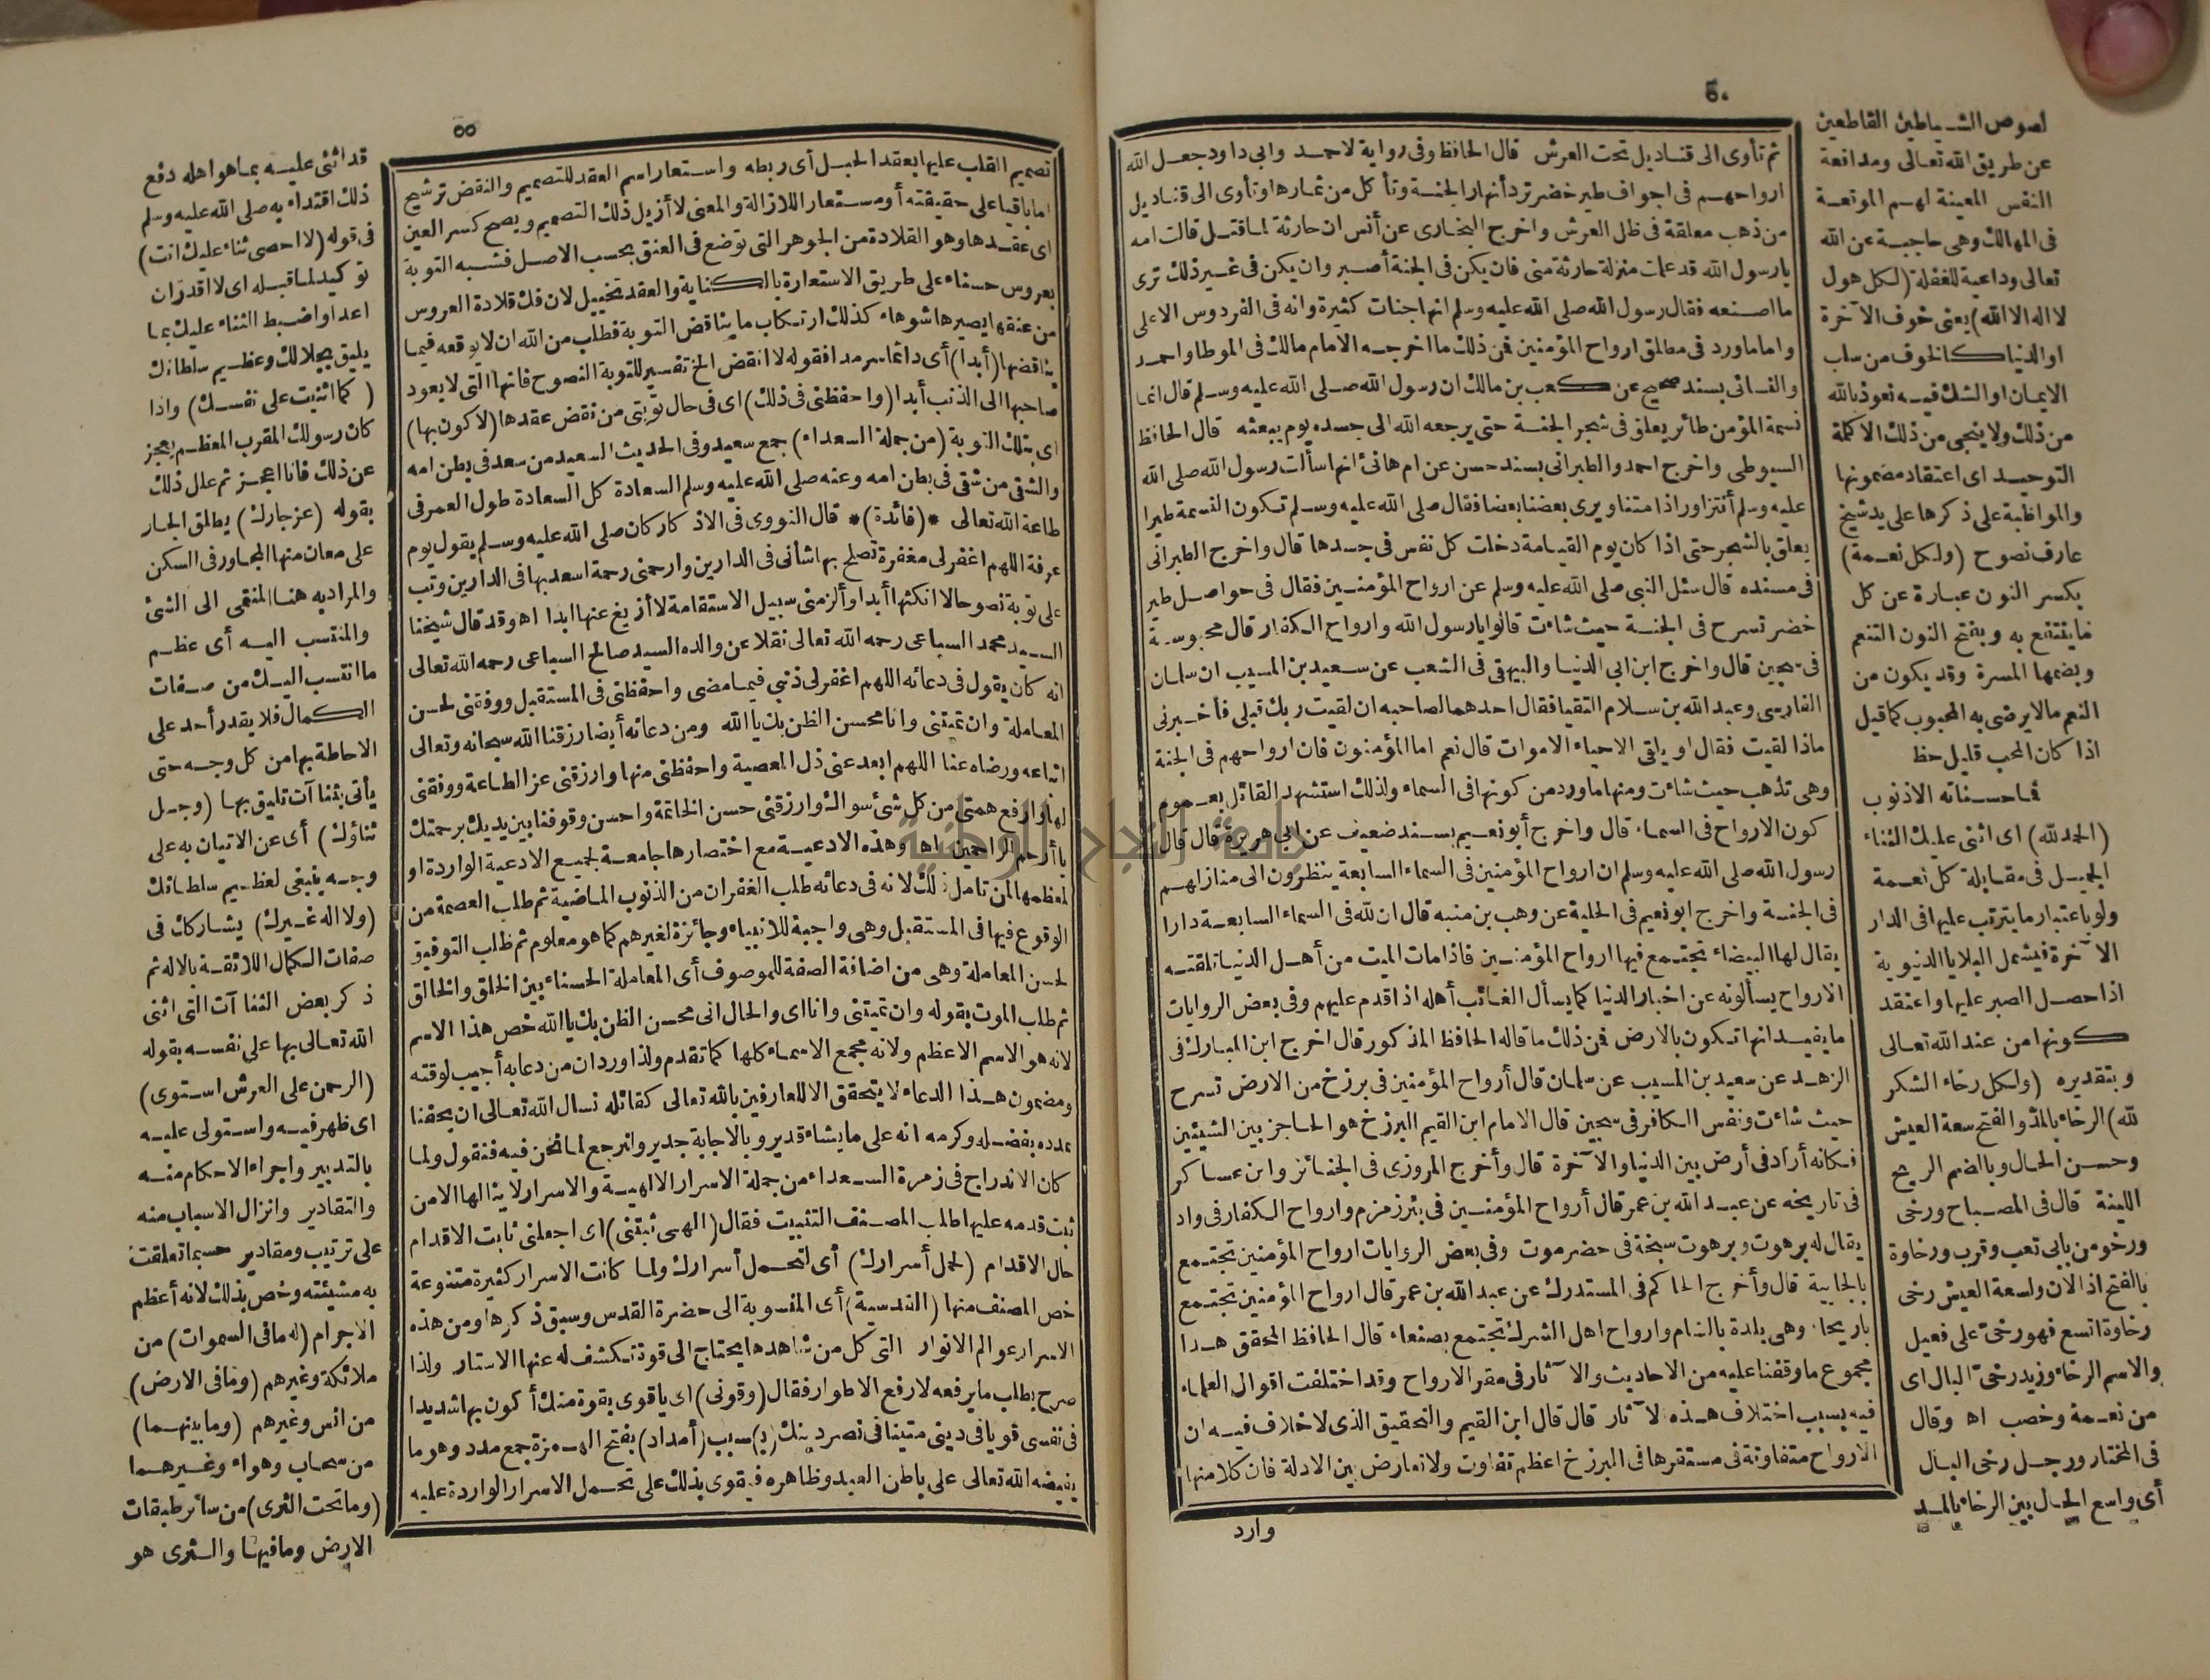 ٥٠
ثم تأوى الى قناديل تحت العرش قال الحافظ وفى رواية لاحمد وابى داود جعل الله
ارواحهم فى اجواف طير خضر ترد أنهار الجنة وتأكل من ثمارها وتأوى الى قناديل
من ذهب معلقة فى ظل العرش واخرج البخارى عن أنس ان حارثة لما قتل قالت امه
يارسول الله قد علمت منزلة حارثة منى فان يكن فى الجنة أصبر وان يكن فى غير ذلك ترى
ما اصنعه فقال رسول الله صلى الله عليه وسلم انها جنات كثيرة وانه فى الفردوس الاعلى
واما ما ورد فى مطلق ارواح المؤمنين فمن ذلك ما اخرجه الامام مالك فى الموطا واحمد
والنسائى بسند صحيح عن كعب بن مالك ان رسول الله صلى الله عليه وسلم قال انما
نسمة المؤمن طائر يعلق فى شجر الجنة حتى يرجعه الله الى جسده يوم يبعثه قال الحافظ
السيوطى واخرج احمد والطبرانى بسند حسن عن ام هانئ انها سألت رسول الله صلى الله
عليه وسلم أنتزاور اذا متنا ويرى بعضنا بعضا فقال صلى الله عليه وسلم تكون النسمة طيرا
يعلق بالشجر حتى اذا كان يوم القيامة دخلت كل نفس فى جسدها قال واخرج الطبرانى
فى مسنده قال سئل النبى صلى الله عليه وسلم عن ارواح المؤمنين فقال فى حواصل طير
خضر تسرح فى الجنة حيث شاءت قالوا يارسول الله وارواح الكفار قال محبوسة
فى سجين قال واخرج ابن ابى الدنيا والبيهقى فى الشعب عن سعيد بن المسيب ان سلمان
الفارسى وعبد الله بن سلام التقيا فقال احدهما لصاحبه ان لقيت ربك قبلى فأخبرنى
ماذا لقيت فقال او يلقى الاحياء الاموات قال نعم اما المؤمنون فان ارواحهم فى الجنة
وهى تذهب حيث شاءت ومنها ما ورد من كونها فى السماء ولذلك استشهد القائل بعموم
كون الارواح فى السماء قال واخرج أبو نعيم بسند ضعيف عن ابى هريرة قال قال
رسول الله صلى الله عليه وسلم ان ارواح المؤمنين فى السماء السابعة ينظرون الى منازلهم
فى الجنة واخرج ابو نعيم فى الحلية عن وهب بن منبه قال ان لله فى السماء السابعة دارا
يقال لها البيضاء تجتمع فيها ارواح المؤمنين فاذا مات الميت من أهل الدنيا تلقته
الارواح يسألونه عن اخبار الدنيا كما يسأل الغائب أهله اذا قدم عليهم وفى بعض الروايات
ما يفيد انها تكون بالارض فمن ذلك ما قاله الحافظ المذكور قال اخرج ابن المبارك فى
الزهد عن سعيد بن المسيب عن سلمان قال أرواح المؤمنين فى برزخ من الارض تسرح
حيث شاءت ونفس الكافر فى سجين قال الامام ابن القيم البرزخ هو الحاجز بين الشيئين
فكانه أراد فى أرض بين الدنيا والآخرة قال وأخرج المروزى فى الجنائز وابن عساكر
فى تاريخه عن عبد الله بن عمر قال أرواح المؤمنين فى بئر زمزم وارواح الكفار فى واد
يقال له برهوت وبرهوت سبخة فى حضرموت وفى بعض الروايات ارواح المؤمنين تجتمع
بالجابية قال وأخرج الحاكم فى المستدرك عن عبد الله بن عمر قال ارواح المؤمنين تجتمع
باريحا وهى بلدة بالشام وارواح اهل الشرك تجتمع بصنعاء قال الحافظ المحقق هذا
مجموع ما وقفنا عليه من الاحاديث والآثار فى مقر الارواح وقد اختلفت اقوال العلماء
فيه بسبب اختلاف هذه الآثار قال قال ابن القيم والتحقيق الذى لا خلاف فيه ان
الارواح متفاوتة فى مستقرها فى البرزخ اعظم تفاوت ولا تعارض بين الادلة فان كلا منها
وارد
لصوص الشياطين القاطعين
عن طريق الله تعالى ومدافعة
النفس المعينة لهم الموقعة
فى المهالك وهى حاجبة عن الله
تعالى وداعية للغفلة (لكل هول
لا اله الا الله) يعنى خوف الآخرة
او الدنيا كالخوف من سلب
الايمان او الشك فيه نعوذ بالله
من ذلك ولا ينجى من ذلك الا كلمة
التوحيد اى اعتقاد مضمونها
والمواظبة على ذكرها على يد شيخ
عارف نصوح (ولكل نعمة)
بكسر النون عبارة عن كل
ما ينتفع به وبفتح النون التنعم
وبضمها المسرة وقد يكون من
النعم ما لا يرضى به المحبوب كما قيل
اذا كان المحب قليل حظ
فما حسناته الا ذنوب
(الحمد لله) اى اثنى عليك الثناء
الجميل فى مقابلة كل نعمة
ولو باعتبار ما يترتب عليها فى الدار
الآخرة فيشمل البلايا الدنيوية
اذا حصل الصبر عليها واعتقد
كونها من عند الله تعالى
وبتقديره (ولكل رخاء الشكر
لله) الرخاء بالمد والفتح سعة العيش
وحسن الحال وبالضم الريح
اللينة قال فى المصباح ورخى
ورخو من بابى تعب وقرب ورخاوة
بالفتح اذا لان ولسعة العيش رخى
رخاوة اتسع فهو رخىّ على فعيل
والاسم الرخاء وزيد رخىّ البال اى
من نعمة وخصب اه وقال
فى المختار ورجل رخى البال
أى واسع الحال بين الرخاء بالمد
٥٥
تصميم القلب عليها بعقد الحبل أى ربطه واستعار اسم العقد للتصميم والنقض ترشيح
اما باقيا على حقيقته أو مستعار اللازالة والمعنى لا أزيل ذلك التصميم ويصح كسر العين
اى عقدها وهو القلادة من الجوهر التى توضع فى العنق بحسب الاصل فشبه التوبة
بعروس حسناء على طريق الاستعارة بالكناية والعقد تخييل لان فك قلادة العروس
من عنقها يصيرها شوهاء كذلك ارتكاب ما يناقض التوبة فطلب من الله ان لا يوقعه فيما
يناقضها (أبدا) أى دائما سرمدا فقوله لا انقض الخ تفسير للتوبة النصوح فانها التى لا يعود
صاحبها الى الذنب أبدا (واحفظنى فى ذلك) اى فى حال توبتى من نقض عقدها (لاكون بها)
اى بتلك التوبة (من جملة السعداء) جمع سعيد وفى الحديث السعيد من سعد فى بطن امه
والشقى من شقى فى بطن امه وعنه صلى الله عليه وسلم السعادة كل السعادة طول العمر فى
طاعة الله تعالى *(فائدة)* قال النووى فى الاذكار كان صلى الله عليه وسلم يقول يوم
عرفة اللهم اغفر لى مغفرة تصلح بها شأنى فى الدارين وارحمنى رحمة اسعد بها فى الدارين وتب
على توبة نصوحا لا انكثها أبدا وألزمنى سبيل الاستقامة لا أزيغ عنها ابدا اه وقد قال شيخنا
السيد محمد السباعى رحمه الله تعالى نقلا عن والده السيد صالح السباعى رحمه الله تعالى
انه كان يقول فى دعائه اللهم اغفر لى ذنبى فيما مضى واحفظنى فى المستقبل ووفقنى لحسن
المعاملة وان تميتنى وانا محسن الظن بك يا الله ومن دعائه أيضا رزقنا الله سبحانه وتعالى
اتباعه ورضاه عنا اللهم ابعد عنى ذل المعصية واحفظنى منها وارزقنى عز الطاعة ووفقنى
لها وارفع همتى من كل شئ سواك وارزقنى حسن الخاتمة واحسن وقوفنا بين يديك برحمتك
يا أرحم الراحمين اه وهذه الادعية مع اختصارها جامعة لجميع الادعية الواردة او
لمعظمها لمن تامل ذلك لانه فى دعائه طلب الغفران من الذنوب الماضية ثم طلب العصمة من
الوقوع فيها فى المستقبل وهى واجبة للانبياء وجائزة لغيرهم كما هو معلوم ثم طلب التوفيق
لحسن المعاملة وهى من اضافة الصفة للموصوف أى المعاملة الحسناء بين الخلق والخالق
ثم طلب الموت بقوله وان تميتنى وانا اى والحال انى محسن الظن بك يا الله خص هذا الاسم
لانه هو الاسم الاعظم ولانه مجمع الاسماء كلها كما تقدم ولذا ورد ان من دعا به أجيب لوقته
ومضمون هذا الدعاء لا يتحقق الا للعارفين بالله تعالى كقائله نسال الله تعالى ان يحفنا
بمدده بفضله وكرمه انه على ما يشاء قدير وبالاجابة جدير ولنرجع لما نحن فيه فنقول ولما
كان الاندراج فى زمرة السعداء من جملة الاسرار الالهية والاسرار لا ينالها الا من
ثبت قدمه عليها طلب المصنف التثبيت فقال (الهى ثبتنى) اى اجعلنى ثابت الاقدام
حال الاقدام (لحمل أسرارك) أى لتحمل أسرارك ولما كانت الاسرار كثيرة متنوعة
خص المصنف منها (القدسية) أى المنسوبة الى حضرة القدس وسبق ذكرها ومن هذه
الاسرار عوالم الانوار التى كل من شاهدها يحتاج الى قوة تكشف له عنها الاستار ولذا
صرح بطلب ما يرفعه لارفع الاطوار فقال (وقونى) اى يا قوى بقوة منك أكون بها شديدا
فى نفسى قويا فى دينى متينا فى نصر دينك (ب) سبب (أمداد) بفتح الهمزة جمع مدد وهو ما
يفيضه الله تعالى على باطن العبد وظاهره فيقوى بذلك على تحمل الاسرار الواردة عليه
قد اثنى عليه بما هو اهله دفع
ذلك اقتداء به صلى الله عليه وسلم
فى قوله (لا احصى ثناء عليك انت)
توكيد لما قبله اى لا اقدر ان
اعد او اضبط الثناء عليك بما
يليق بجلالك وعظيم سلطانك
(كما اثنيت على نفسك) واذا
كان رسولك المقرب المعظم يعجز
عن ذلك فانا اعجز ثم علل ذلك
بقوله (عز جارك) يطلق الجار
على معان منها المجاور فى السكن
والمراد به هنا المنتمى الى الشئ
والمنتسب اليه أى عظم
ما انتسب اليك من صفات
الكمال فلا يقدر أحد على
الاحاطة بها من كل وجه حتى
يأتى بثنا آت تليق بها (وجل
ثناؤك) أى عن الاتيان به على
وجه ينبغى لعظيم سلطانك
(ولا اله غيرك) يشاركك فى
صفات الكمال اللائقة بالاله ثم
ذكر بعض الثنا آت التى اثنى
الله تعالى بها على نفسه بقوله
(الرحمن على العرش استوى)
اى ظهر فيه واستولى عليه
بالتدبير واجراء الاحكام منه
والتقادير وانزال الاسباب منه
على ترتيب ومقادير حسبما تعلقت
به مشيئته وخص بذلك لانه أعظم
الاجرام (له ما فى السموات) من
ملائكة وغيرهم (وما فى الارض)
من انس وغيرهم (وما بينهما)
من سحاب وهواء وغيرهما
(وما تحت الثرى) من سائر طبقات
الارض وما فيها والثرى هو
جامعة النجاح الوطنية